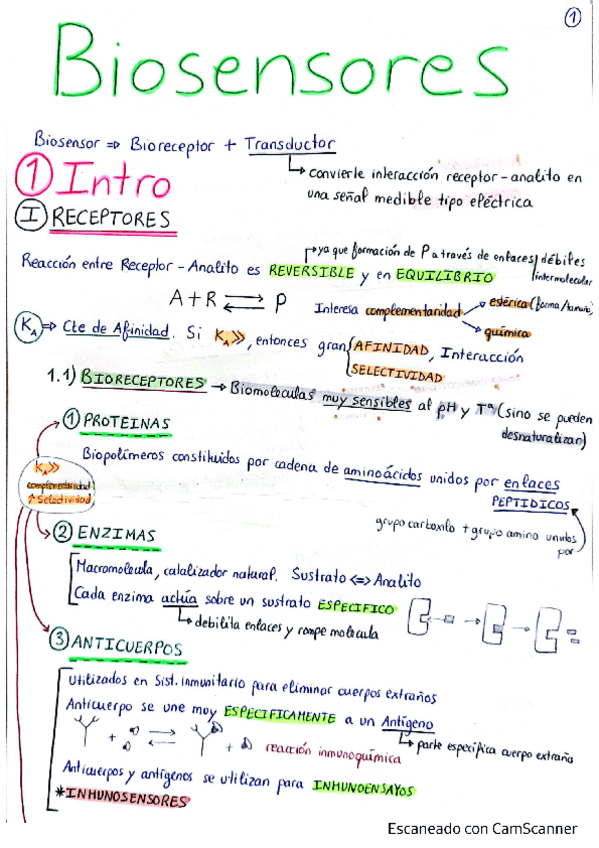 1
Biosensores
Biosensor ⇒ Bioreceptor + Transductor
↳ convierte interacción receptor-analito en
una señal medible tipo eléctrica
① Intro
Ⓘ RECEPTORES
ya que formación de P a través de enlaces débiles
intermolecular
Reacción entre Receptor - Analito es REVERSIBLE y en EQUILIBRIO
A + R ⇌ P
Interesa complementaridad
estérica (forma/tamaño)
química
KA ⇒ Cte de Afinidad. Si KA>>, entonces gran AFINIDAD, Interacción
SELECTIVIDAD
1.1) BIORECEPTORES → Biomoleculas muy sensibles al pH y Tª (sino se pueden
desnaturalizan)
① PROTEINAS
Biopolímeros constituidos por cadena de aminoácidos unidos por enlaces
PEPTIDICOS
grupo carboxilo + grupo amino unidos
por
KA>>
complementaridad
↑ Selectividad
② ENZIMAS
Macromolecula, catalizador natural. Sustrato <=> Analito
Cada enzima actúa sobre un sustrato ESPECIFICO
↳ debilita enlaces y rompe molécula
③ ANTICUERPOS
Utilizados en Sist. inmunitario para eliminar cuerpos extraños
Anticuerpo se une muy ESPECIFICAMENTE a un Antígeno
↳ parte específica cuerpo extraño
+ ⇌ + reacción inmunoquímica
Anticuerpos y antígenos se utilizan para INMUNOENSAYOS
*INMUNOSENSORES
Escaneado con CamScanner